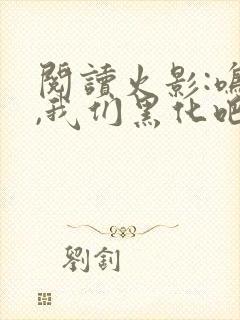 閱讀火影:鳴
,我们黑化吧
劉釗